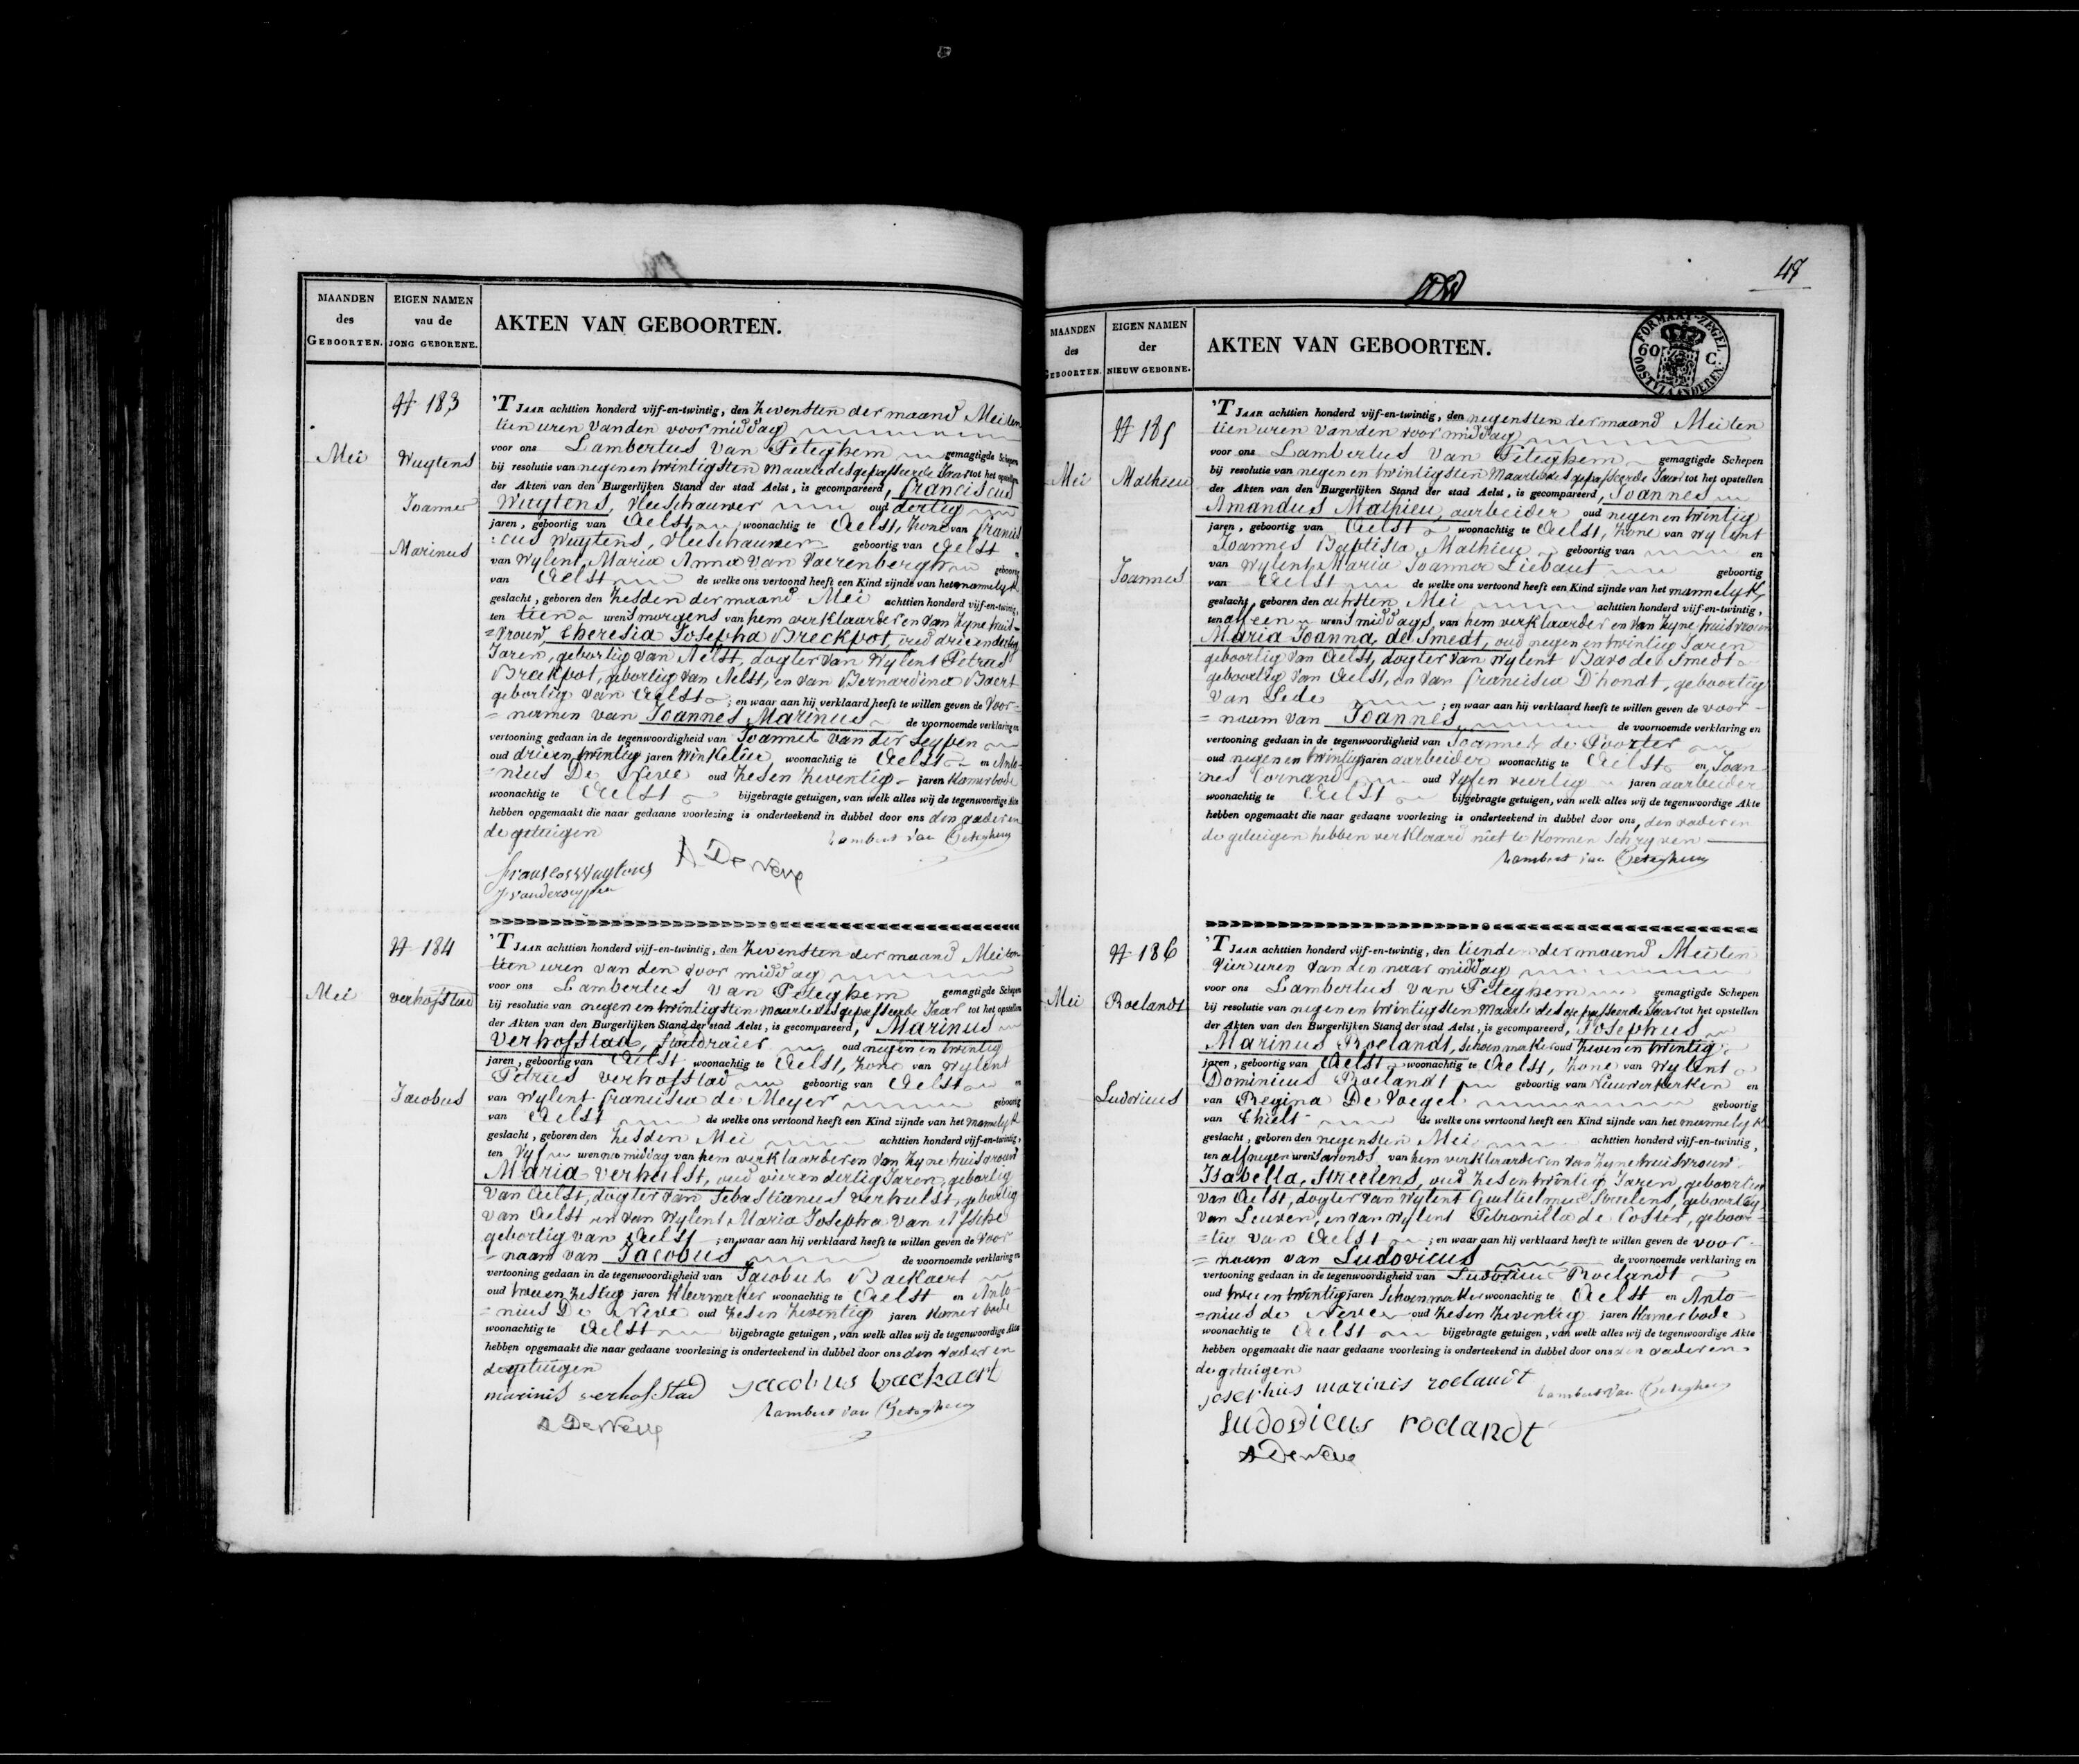 MAANDEN
des
GEBOORTEN.
EIGEN NAMEN
van de
JONG GEBORENE.
AKTEN VAN GEBOORTEN.
N 183
Mei
Wuytens
Joannes
Marinus
'T JAAR achttien honderd vijf-en-twintig, den zevensten der maand Mei ten
tien uren vanden voormiddag
voor ons Lambertus Van Peteghem gemagtigde Schepen
bij resolutie van negen en twintigsten Maarte des gepasseerde Jaar tot het opstellen
der Akten van den Burgerlijken Stand der stad Aelst, is gecompareerd, Franciscus
Wuytens, Vleeschauwer oud dertig
jaren, geboortig van Aelst, woonachtig te Aelst, zone van Francis
=cus Wuytens, Vleeschauwer geboortig van Aelst
van wylent Maria Anna Van Vaerenbergh geboortig
van Aelst de welke ons vertoond heeft een Kind zijnde van het mannelyk
geslacht, geboren den zesden der maand Mei achttien honderd vijf-en-twintig,
ten tien uren smorgens van hem verklaarder en van zyne huis-
=vrouw Theresia Josepha Breckpot, oud drie en dertig
Jaren, gebortig van Aelst, dogter van wylent Petrus
Breckpot, gebortig van Aelst, en van Bernardina Baert
gebortig van Aelst ; en waar aan hij verklaard heeft te willen geven de voor-
=namen van Joannes Marinus de voornoemde verklaring en
vertooning gedaan in de tegenwoordigheid van Joannes Van der Seypen
oud drie en twintig jaren Winkelier, woonachtig te Aelst en Anto-
=nius De Neve oud zesen zeventig jaren Kamerbode
woonachtig te Aelst bijgebragte getuigen, van welk alles wij de tegenwoordige Akte
hebben opgemaakt die naar gedaane voorlezing is onderteekend in dubbel door ons den vader en
de getuigen
Lambert van Peteghem
A De Neve
N 184
Mei
Verhofstad
Jacobus
'T JAAR achttien honderd vijf-en-twintig, den zevensten der maand Mei ten
tien uren van den voor middag
voor ons Lambertus Van Peteghem gemagtigde Schepen
bij resolutie van negen en twintigsten Maarte des gepasseerde Jaar tot het opstellen
der Akten van den Burgerlijken Stand der stad Aelst, is gecompareerd, Marinus
Verhofstad, oud negen en twintig
jaren, geboortig van Aelst woonachtig te Aelst, zone van wylent
Petrus Verhofstad geboortig van Aelst en
van wylent Francisca de Meyer geboortig
van Aelst de welke ons vertoond heeft een Kind zijnde van het mannelyk
geslacht, geboren den zesden Mei achttien honderd vijf-en-twintig,
ten vyf uren na middag van hem verklaarder en van zyne huisvrouw
Maria Verhulst, oud vier en dertig Jaren, gebortig
van Aelst, dogter van Sebastianus Verhulst, gebortig
van Aelst en van wylent Maria Josepha Van Assche
gebortig van Aelst ; en waar aan hij verklaard heeft te willen geven de voor
=naam van Jacobus de voornoemde verklaring en
vertooning gedaan in de tegenwoordigheid van Jacobus Backaert
oud twee en zestig jaren Kleermaker woonachtig te Aelst en Anto-
=nius De Neve oud zesen zeventig jaren Kamerbode
woonachtig te Aelst bijgebragte getuigen, van welk alles wij de tegenwoordige Akte
hebben opgemaakt die naar gedaane voorlezing is onderteekend in dubbel door ons den vader en
de getuigen
marinis verhofstad Jacobus backaert
Lambert van Peteghem
A De Neve
47
MAANDEN
des
GEBOORTEN.
EIGEN NAMEN
der
NIEUW GEBORNE.
AKTEN VAN GEBOORTEN.
FORMAAT-ZEGEL
60 C.
OOSTVLAANDEREN.
N 185
Mei
Mathieu
Joannes
'T JAAR achttien honderd vijf-en-twintig, den negensten der maand Mei ten
tien uren vanden voor middag
voor ons Lambertus Van Peteghem gemagtigde Schepen
bij resolutie van negen en twintigsten Maarte des gepasseerde Jaar tot het opstellen
der Akten van den Burgerlijken Stand der stad Aelst, is gecompareerd, Joannes
Amandus Mathieu, aarbeider oud negen en twintig
jaren, geboortig van Aelst woonachtig te Aelst, zone van wylent
Joannes Baptista Mathieu geboortig van en
van wylent Maria Joanna Liebaut geboortig
van Aelst de welke ons vertoond heeft een Kind zijnde van het mannelyk
geslacht, geboren den achsten Mei achttien honderd vijf-en-twintig,
ten alf een uren smiddags, van hem verklaarder en van zyne huisvrouw
Maria Joanna de Smedt, oud negen en twintig Jaren
geboortig van Aelst, dogter van wylent Bavo de Smedt
geboortig van Aelst, en van Francisca D'hondt, geboortig
van Lede ; en waar aan hij verklaard heeft te willen geven de voor-
=naam van Joannes de voornoemde verklaring en
vertooning gedaan in de tegenwoordigheid van Joannes de Poorter
oud negen en twintig jaren aarbeider woonachtig te Aelst en Joan-
nes Cornand oud vyfen veertig jaren aarbeider
woonachtig te Aelst bijgebragte getuigen, van welk alles wij de tegenwoordige Akte
hebben opgemaakt die naar gedaane voorlezing is onderteekend in dubbel door ons, den vader en
de getuigen hebben verklaard niet te konnen schryven
Lambert van Peteghem
N 186
Mei
Roelandt
Ludovicus
'T JAAR achttien honderd vijf-en-twintig, den tienden der maand Mei ten
vier uren van den naar middag
voor ons Lambertus Van Peteghem gemagtigde Schepen
bij resolutie van negen en twintigsten Maarte des gepasseerde Jaar tot het opstellen
der Akten van den Burgerlijken Stand der stad Aelst, is gecompareerd, Josephus
Marinus Roelandt, schoenmaker oud zeven en twintig
jaren, geboortig van Aelst woonachtig te Aelst, zone van wylent
Dominicus Roelandt geboortig van Nieuwerkerken en
van Regina De Voegel geboortig
van Thielt de welke ons vertoond heeft een Kind zijnde van het mannelyk
geslacht, geboren den negensten Mei achttien honderd vijf-en-twintig,
ten alf negen uren savonds van hem verklaarder en van zyne huisvrouw
Isabella Streelens, oud zes en twintig Jaren, geboortig
van Aelst, dogter van wylent Guilielmus Streelens, geboortig
van Leuven, en van wylent Petronilla de Coster, geboor=
=tig van Aelst ; en waar aan hij verklaard heeft te willen geven de voor-
=naam van Ludovicus de voornoemde verklaring en
vertooning gedaan in de tegenwoordigheid van Ludovicus Roelandt
oud twee en twintig jaren schoenmaker woonachtig te Aelst en Anto-
=nius de Neve oud zesen zeventig jaren Kamerbode
woonachtig te Aelst bijgebragte getuigen, van welk alles wij de tegenwoordige Akte
hebben opgemaakt die naar gedaane voorlezing is onderteekend in dubbel door ons den vader en
de getuigen
josephus marinis roelandt Lambert van Peteghem
Ludovicus roelandt
A De Neve